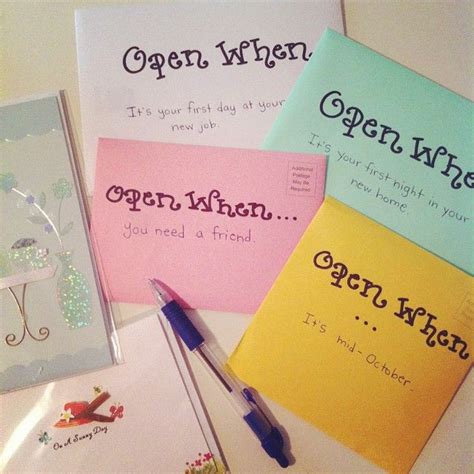 Open When...
It's your first day at your
new job.
Open When
It's your first night in your
new home.
Open When...
you need a friend.
Additional
Postage
May Be
Required
Open When
...
It's mid-October.
On A Sunny Day